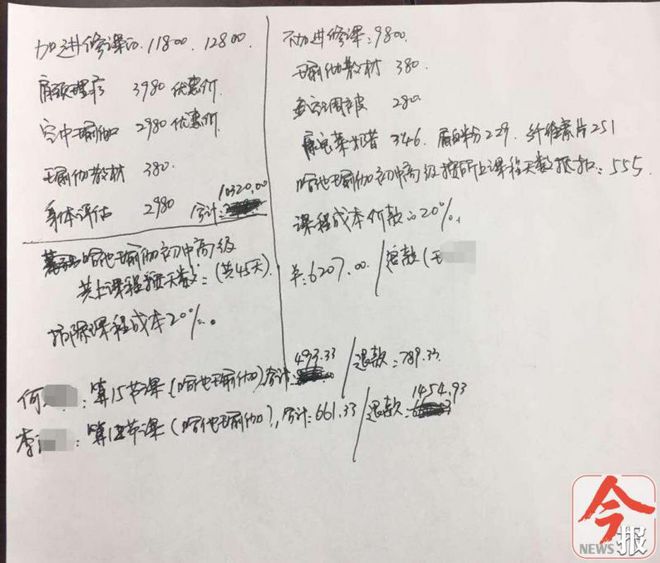 加进修课: 11800. 12800.
肩颈理疗 3980 优惠价.
空中瑜伽 2980 优惠价.
瑜伽教材 380.
身体评估 2980 合计: 10320.00
哈他瑜伽初中高级
共上课程按天数: (共45天)
扣除课程成本20%.
不加进修课: 9800.
瑜伽教材 380.
280
346. 蛋白粉229. 纤维素片251
哈他瑜伽初中高级按所上课程天数抵扣: 555.
课程成本价款的20%.
6207.00 / 退款(王
何 : 算15节课(哈他瑜伽)合计: 493.33 / 退款: 789.33
李 : 算12节课(哈他瑜伽), 合计: 661.33 / 退款: 1454.93
今报
NEWS